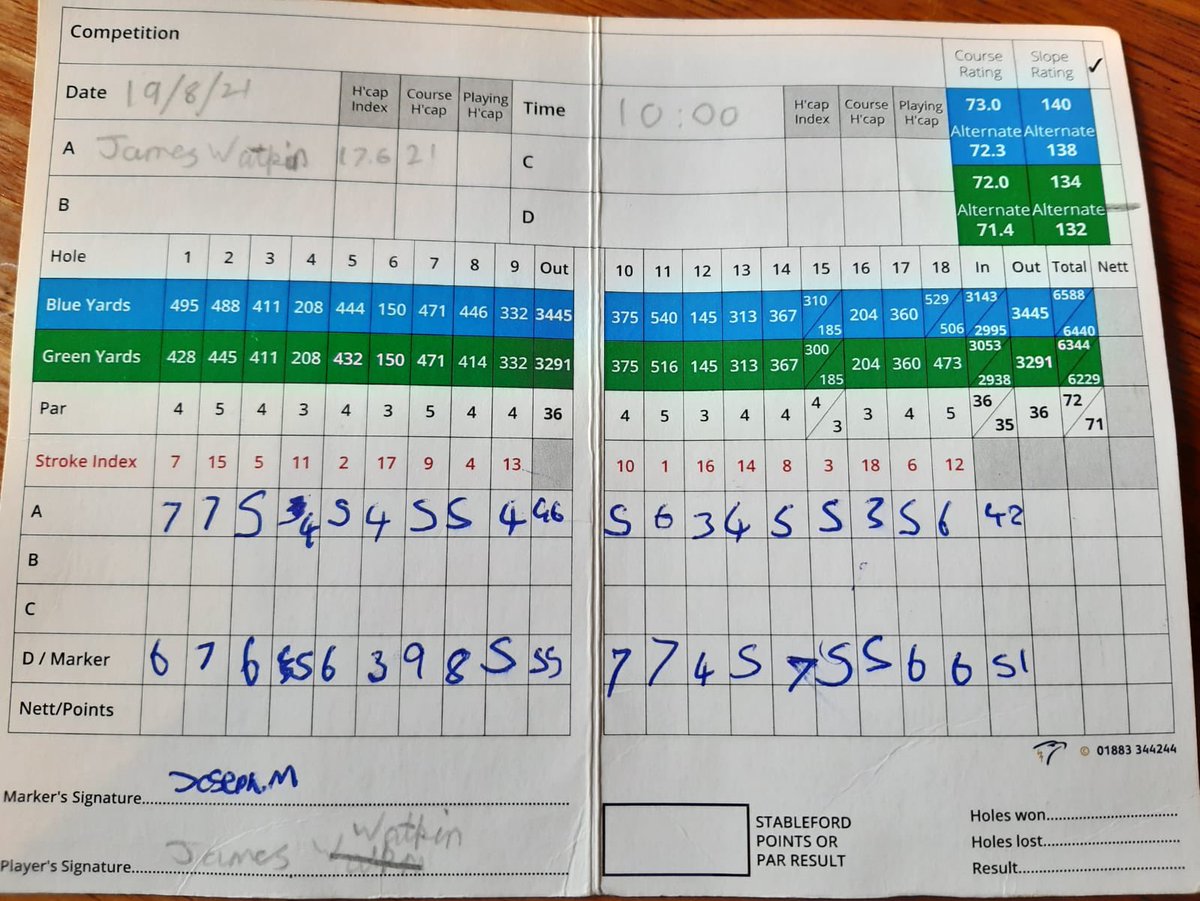 Competition
Course Rating Slope Rating ✓
Date 19/8/21 H'cap Index Course H'cap Playing H'cap Time 10:00 H'cap Index Course H'cap Playing H'cap
73.0 140
Alternate Alternate
72.3 138
A James Watkin 17.6 21 C
72.0 134
B D
Alternate Alternate
71.4 132
Hole 1 2 3 4 5 6 7 8 9 Out 10 11 12 13 14 15 16 17 18 In Out Total Nett
Blue Yards 495 488 411 208 444 150 471 446 332 3445 375 540 145 313 367 310/185 204 360 529/506 3143/2995 3445 6588/6440
Green Yards 428 445 411 208 432 150 471 414 332 3291 375 516 145 313 367 300/185 204 360 473 3053/2938 3291 6344/6229
Par 4 5 4 3 4 3 5 4 4 36 4 5 3 4 4 4/3 3 4 5 36/35 36 72/71
Stroke Index 7 15 5 11 2 17 9 4 13 10 1 16 14 8 3 18 6 12
A 7 7 5 4 5 4 5 5 4 46 5 6 3 4 5 5 3 5 6 42
B
C
D / Marker 6 7 6 5 6 3 9 8 5 55 7 7 4 5 7 5 5 6 6 51
Nett/Points
© 01883 344244
Marker's Signature Joseph.M
Player's Signature James Watkin
STABLEFORD
POINTS OR
PAR RESULT
Holes won
Holes lost
Result